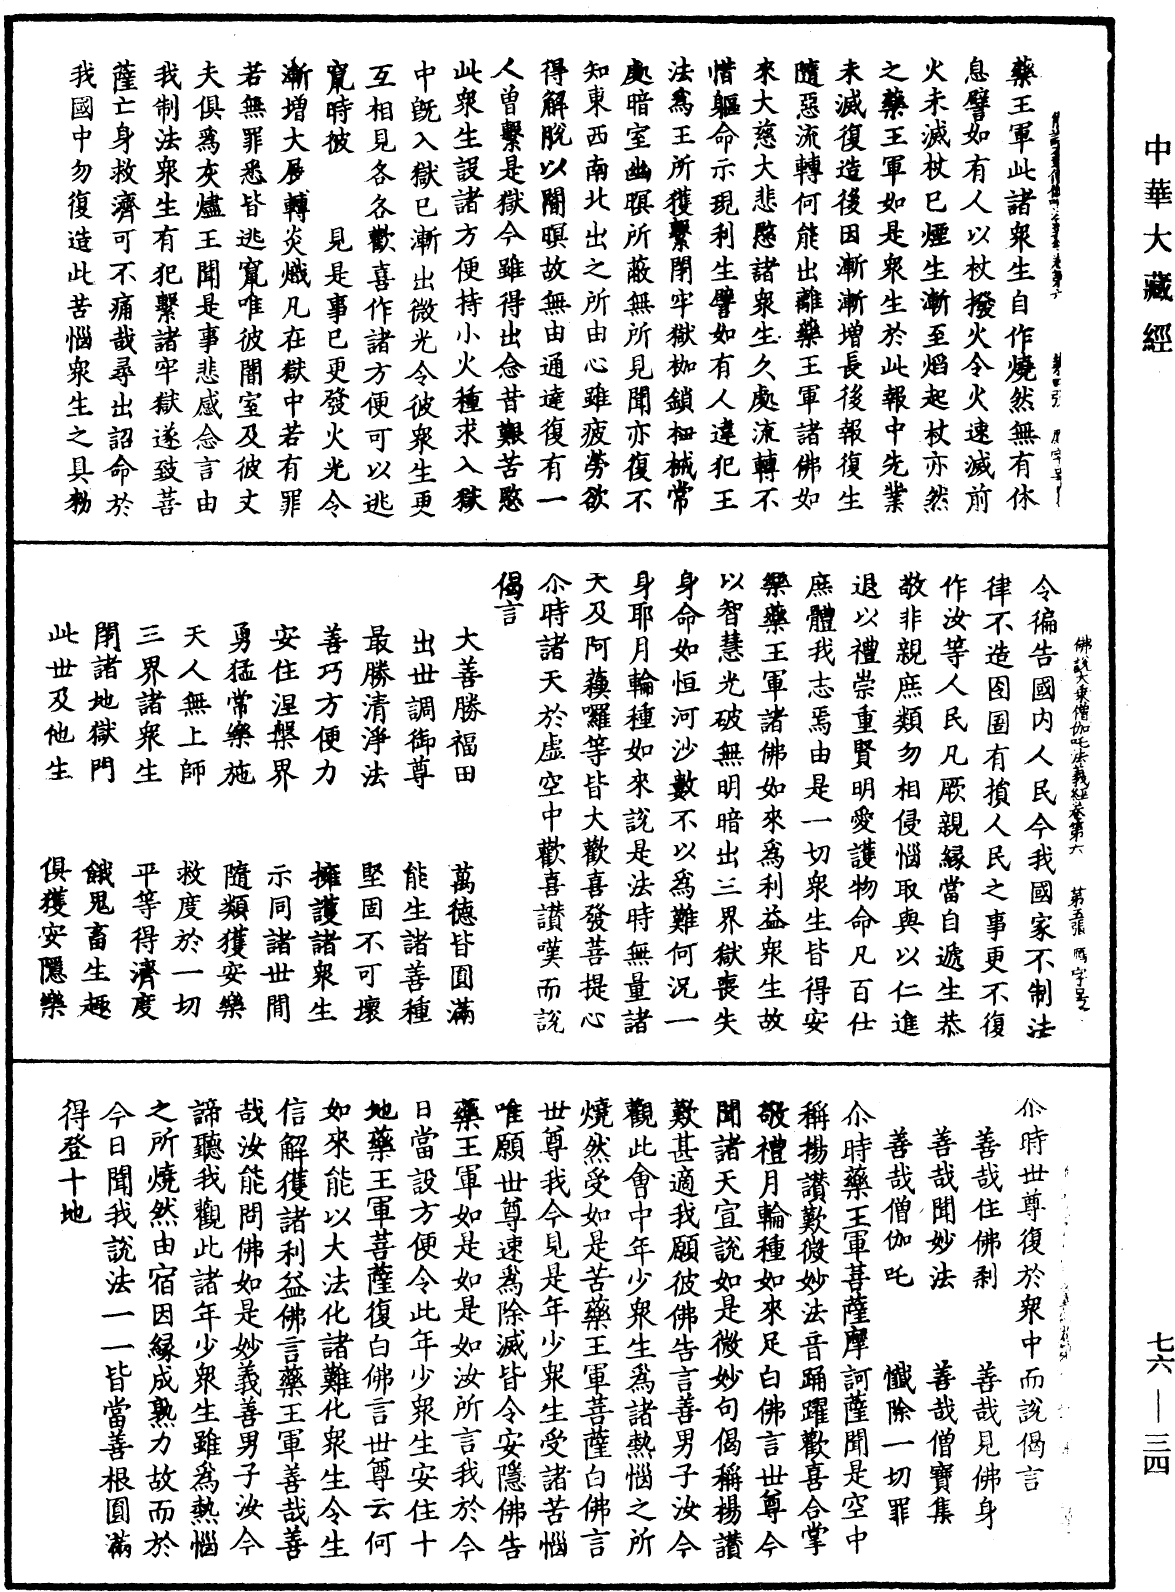 中華大藏經
藥王軍此諸衆生自作燒然無有休
息譬如有人以杖撥火令火速滅前
火未滅杖已煙生漸至焰起杖亦然
之藥王軍如是衆生於此報中先業
未滅復造後因漸漸增長後報復生
隨惡流轉何能出離藥王軍諸佛如
來大慈大悲愍諸衆生久處流轉不
惜軀命示現利生譬如有人違犯王
法爲王所獲繫閉牢獄枷鎖杻械常
處暗室幽暝所蔽無所見聞亦復不
知東西南北出之所由心雖疲勞欲
得解脫以闇暝故無由通達復有一
人曾繫是獄今雖得出念昔艱苦愍
此衆生設諸方便持小火種求入獄
中既入獄已漸出微光令彼衆生更
互相見各各歡喜作諸方便可以逃
竄時彼 見是事已更發火光令
漸增大展轉炎熾凡在獄中若有罪
若無罪悉皆逃竄唯彼闇室及彼丈
夫俱爲灰燼王聞是事悲感念言由
我制法衆生有犯繫諸牢獄遂致菩
薩亡身救濟可不痛哉尋出詔命於
我國中勿復造此苦惱衆生之具勑
佛說大乘僧伽吒法義經卷第六 第五張 鴈字号
令徧告國内人民今我國家不制法
律不造囹圄有損人民之事更不復
作汝等人民凡厥親緣當自遞生恭
敬非親庶類勿相侵惱取與以仁進
退以禮崇重賢明愛護物命凡百仕
庶體我志焉由是一切衆生皆得安
樂藥王軍諸佛如來爲利益衆生故
以智慧光破無明暗出三界獄喪失
身命如恒河沙數不以爲難何況一
身耶月輪種如來說是法時無量諸
天及阿蘓囉等皆大歡喜發菩提心
尒時諸天於虛空中歡喜讚嘆而說
偈言
大善勝福田 萬德皆圓滿
出世調御尊 能生諸善種
最勝清淨法 堅固不可壞
善巧方便力 擁護諸衆生
安住涅槃界 示同諸世間
勇猛常樂施 隨類獲安樂
天人無上師 救度於一切
三界諸衆生 平等得濟度
閉諸地獄門 餓鬼畜生趣
此世及他生 俱獲安隱樂
尒時世尊復於衆中而說偈言
善哉住佛剎 善哉見佛身
善哉聞妙法 善哉僧寶集
善哉僧伽吒 懺除一切罪
尒時藥王軍菩薩摩訶薩聞是空中
稱揚讚歎微妙法音踊躍歡喜合掌
敬禮月輪種如來足白佛言世尊今
聞諸天宣說如是微妙句偈稱揚讚
歎甚適我願彼佛告言善男子汝今
觀此會中年少衆生爲諸熱惱之所
燒然受如是苦藥王軍菩薩白佛言
世尊我今見是年少衆生受諸苦惱
唯願世尊速爲除滅皆令安隱佛告
藥王軍如是如是如汝所言我於今
日當設方便令此年少衆生安住十
地藥王軍菩薩復白佛言世尊云何
如來能以大法化諸難化衆生令生
信解獲諸利益佛言藥王軍善哉善
哉汝能問佛如是妙義善男子汝今
諦聽我觀此諸年少衆生雖爲熱惱
之所燒然由宿因緣成熟力故而於
今日聞我說法一一皆當善根圓滿
得登十地
七六—三四